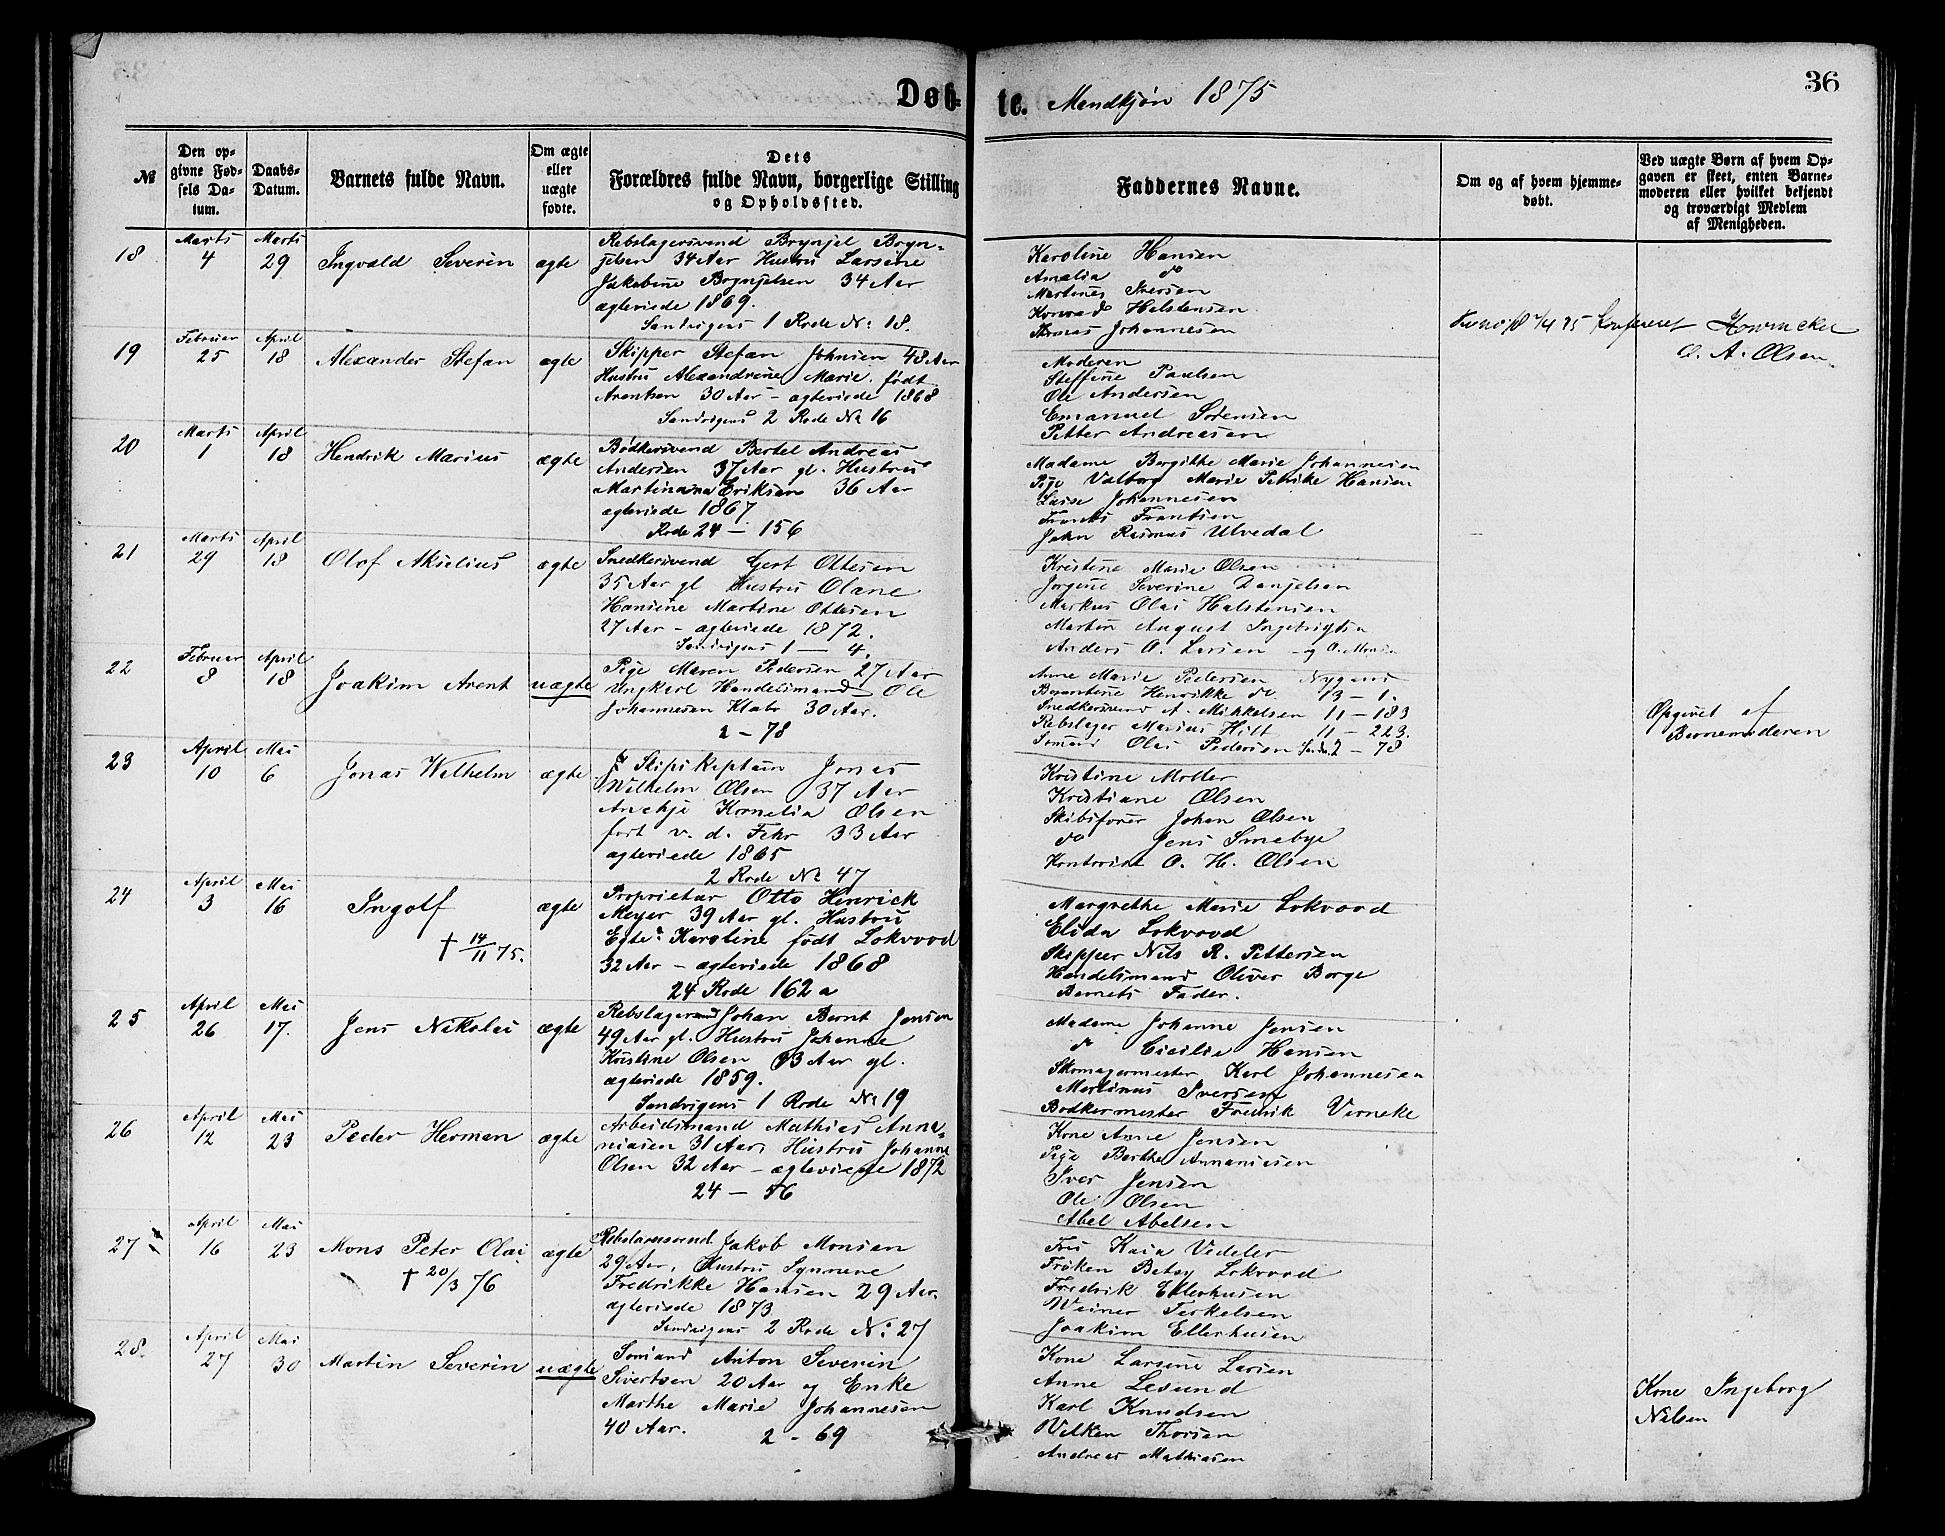 Døb-te. Mandkjøn 1875
36
№
Den op-
givne Fød-
sels Da-
tum.
Daabs-
Datum.
Barnets fulde Navn.
Om ægte
eller
uægte
fødte.
Dets
Forældres fulde Navn, borgerlige Stilling
og Opholdssted.
Faddernes Navne.
Om og af hvem hjemme-
døbt.
Ved uægte Børn af hvem Op-
gaven er skeet, enten Barne-
moderen eller hvilket bekjendt
og troværdigt Medlem
af Menigheden.
18
Marts
4
Marts
29
Ingvald Severin
ægte
Rebslagersvend Brynjel Bryn-
jelsen 34 Aar Hustru Larsine
Jakobine Brynjelsen 34 Aar
ægteviede 1869.
Sandvigens 1 Rode № 18.
Karoline Hansen
Amalia do
Martinus Iversen
Konrad Halstensen
Thomas Johannesen
19
Februar
25
April
18
Alexander Stefan
ægte
Skipper Stefan Johnsen 48 Aar
Hustru Alexandrine Marie født
Arentsen 30 Aar - ægteviede 1868
Sandvigens 2 Rode № 16
Moderen
Steffine Paulsen
Ole Andersen
Emanuel Sørensen
Petter Andreasen
Konfereret
O. A. Olsen
20
Marts
1
April
18
Hendrik Marius
ægte
Bødkersvend Bertel Andreas
Andersen 37 Aar gl. Hustru
Martinana Eriksen 36 Aar
ægteviede 1867
Rode 24 - 156
Madame Bergithe Marie Johannesen
Pige Valborg Marie Petrike Hansen
Lasse Johannesen
Frants Frantsen
John Rasmus Ulvedal
21
Marts
29
April
18
Olaf Akselius
ægte
Snedkersvend Gert Ottesen
35 Aar gl Hustru Olane
Hansine Martine Ottesen
27 Aar - ægteviede 1872.
Sandvigens 1 - 4.
Kristine Marie Olsen
Jørgine Severine Danjelsen
Markus Olai Halstensen
Martin August Ingebrigtsen
Anders O. Larsen
22
Februar
8
April
18
Joakim Arent
uægte
Pige Maren Pedersen 27 Aar
Ungkarl Handelsmand Ole
Johannesen Klabo 30 Aar.
2 - 78
Anne Marie Pedersen Nygaard
Berentine Henrikke do 13 - 1.
Snedkersvend A. Mikkelsen 11 - 183
Rebslager Marius Hilt 11 - 223.
Sømand Olai Pedersen Sandv. 2 - 78
Opgivet af
Barnemoderen
23
April
10
Mai
6
Jonas Wilhelm
ægte
Skipskaptain Jonas
Wilhelm Olsen 37 Aar
Anekje Kornelia Olsen
født v. d. Fehr 33 Aar
ægteviede 1865
2 Rode № 47
Kristine Møller
Kristiane Olsen
Skibsfører Johan Olsen
do Jens Smebye
Kontorist O. H. Olsen
24
April
3
Mai
16
Ingolf
† 14/11 75.
ægte
Proprietær Otto Henrick
Meyer 39 Aar gl. Hustru
Egte Karoline født Lokvood
32 Aar - ægteviede 1868
24 Rode 162 a
Margrethe Marie Lokvood
Elida Lokvood
Skipper Nils R. Pettersen
Handelsmand Oliver Borge
Barnets Fader.
25
April
26
Mai
17.
Jens Nikolai
ægte
Rebslagersvend Johan Bernt Jensen
49 Aar gl. Hustru Johanne
Kristine Olsen 33 Aar gl.
ægteviede 1859.
Sandvigens 1 Rode № 19
Madame Johanne Jensen
do Cicilie Hansen
Skomagermester Karl Johannesen
Martinus Iversen
Bødkermester Fredrik Verneke
26
April
12
Mai
23
Peder Herman
ægte
Arbeidsmand Mathias Anna-
niasen 31 Aar, Hustru Johanne
Olsen 32 Aar - ægteviede 1872
24 - 56
Kone Anne Jensen
Pige Berthe Annaniesen
Iver Jensen
Ole Olsen
Abel Abelsen
27
April
16
Mai
23
Mons Peter Olai
† 20/3 76
ægte
Rebslagersvend Jakob Monsen
29 Aar, Hustru Synneve
Fredrikke Hansen 29 Aar.
ægteviede 1873
Sandvigens 2 Rode № 27
Fru Kaia Vedeler
Frøken Betsy Lokvood
Fredrik Ellerhusen
Weiner Terkelsen
Joakim Ellerhusen
28.
April
27
Mai
30
Martin Severin
uægte
Sømand Anton Severin
Sivertsen 20 Aar og Enke
Marthe Marie Johannesen
40 Aar.
2 - 69
Kone Larsine Larsen
Anne Lesund
Karl Knudsen
Velken Thorsen
Andreas Mathiasen
Kone Ingeborg
Nilsen